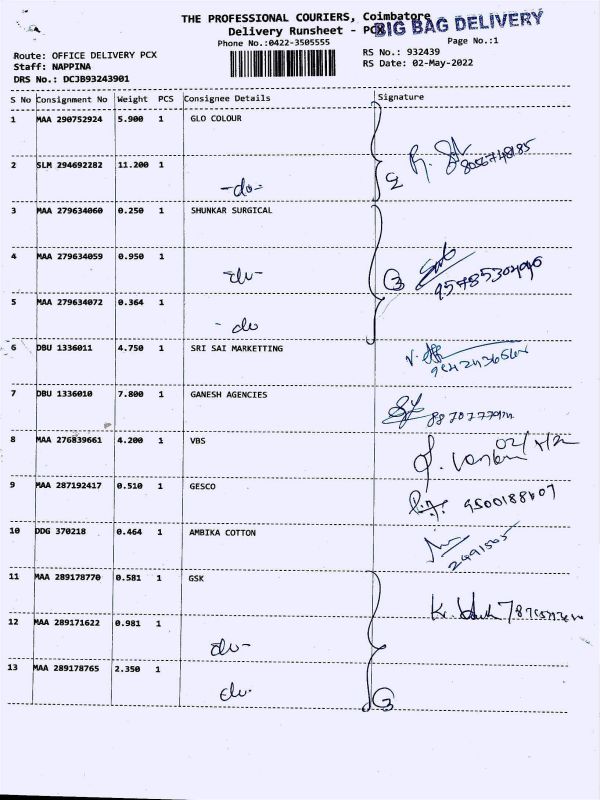 THE PROFESSIONAL COURIERS, Coimbatore
BIG BAG DELIVERY
Delivery Runsheet - PCX
Phone No.:0422-3505555
Page No.:1
Route: OFFICE DELIVERY PCX
RS No.: 932439
Staff: NAPPINA
RS Date: 02-May-2022
DRS No.: DCJB93243901
S No Consignment No Weight PCS Consignee Details Signature
1 MAA 290752924 5.900 1 GLO COLOUR
2 SLM 294692282 11.200 1
-do-
3 MAA 279634060 0.250 1 SHUNKAR SURGICAL
4 MAA 279634059 0.950 1
-do-
3
5 MAA 279634072 0.364 1
- do
6 DBU 1336011 4.750 1 SRI SAI MARKETTING
7 DBU 1336010 7.800 1 GANESH AGENCIES
8 MAA 276839661 4.200 1 VBS
9 MAA 287192417 0.510 1 GESCO
10 DDG 370218 0.464 1 AMBIKA COTTON
11 MAA 289178770 0.581 1 GSK
12 MAA 289171622 0.981 1
-do-
13 MAA 289178765 2.350 1
-do-
3